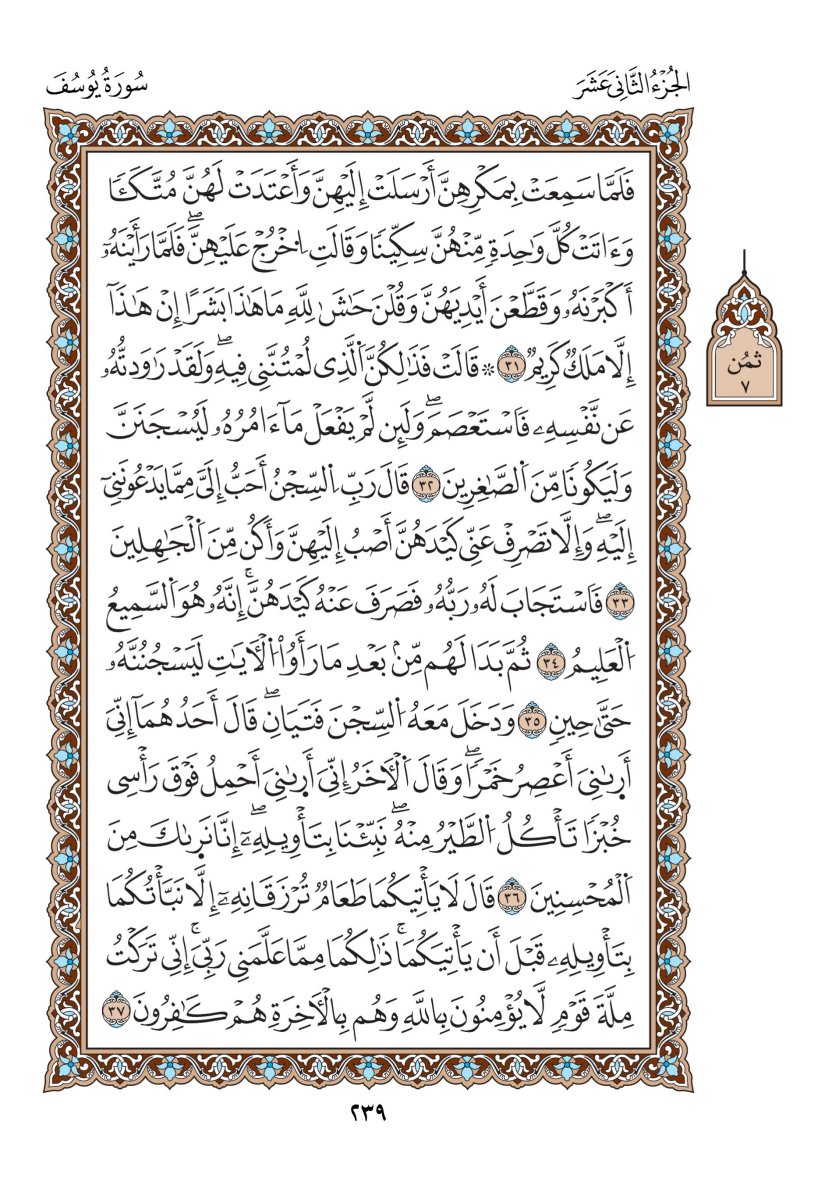 الجُزْءُ الثَّانِيَ عَشَرَ
سُورَةُ يُوسُفَ
فَلَمَّا سَمِعَتْ بِمَكْرِهِنَّ أَرْسَلَتْ إِلَيْهِنَّ وَأَعْتَدَتْ لَهُنَّ مُتَّكَـٔٗا
وَءَاتَتْ كُلَّ وَٰحِدَةٖ مِّنْهُنَّ سِكِّينٗا وَقَالَتِ اِ۟خْرُجْ عَلَيْهِنَّۖ فَلَمَّا رَأَيْنَهُۥٓ
أَكْبَرْنَهُۥ وَقَطَّعْنَ أَيْدِيَهُنَّ وَقُلْنَ حَٰشَ لِلهِ مَا هَٰذَا بَشَرًا إِنْ هَٰذَآ
إِلَّا مَلَكٞ كَرِيمٞ ٣١ ۞ قَالَتْ فَذَٰلِكُنَّ اَ۬لَّذِي لُمْتُنَّنِي فِيهِۖ وَلَقَدْ رَٰوَدتُّهُۥ
عَن نَّفْسِهِۦ فَاسْتَعْصَمَۖ وَلَئِن لَّمْ يَفْعَلْ مَآ ءَامُرُهُۥ لَيُسْجَنَنَّ
وَلَيَكُونٗا مِّنَ اَ۬لصَّٰغِرِينَ ٣٢ قَالَ رَبِّ اِ۬لسِّجْنُ أَحَبُّ إِلَيَّ مِمَّا يَدْعُونَنِيٓ
إِلَيْهِۖ وَإِلَّا تَصْرِفْ عَنِّي كَيْدَهُنَّ أَصْبُ إِلَيْهِنَّ وَأَكُن مِّنَ اَ۬لْجَٰهِلِينَ
٣٣ فَاسْتَجَابَ لَهُۥ رَبُّهُۥ فَصَرَفَ عَنْهُ كَيْدَهُنَّۚ إِنَّهُۥ هُوَ اَ۬لسَّمِيعُ
اُ۬لْعَلِيمُ ٣٤ ثُمَّ بَدَا لَهُم مِّنۢ بَعْدِ مَا رَأَوُاْ اُ۬لْأٓيَٰتِ لَيَسْجُنُنَّهُۥ
حَتَّىٰ حِينٖ ٣٥ وَدَخَلَ مَعَهُ اُ۬لسِّجْنَ فَتَيَٰنِۖ قَالَ أَحَدُهُمَآ إِنِّيَ
أَر۪ىٰنِيَ أَعْصِرُ خَمْرٗاۖ وَقَالَ اَ۬لْأٓخَرُ إِنِّيَ أَر۪ىٰنِيَ أَحْمِلُ فَوْقَ رَأْسِي
خُبْزٗا تَأْكُلُ اُ۬لطَّيْرُ مِنْهُۖ نَبِّئْنَا بِتَأْوِيلِهِۦٓۖ إِنَّا نَر۪ىٰكَ مِنَ
اَ۬لْمُحْسِنِينَ ٣٦ قَالَ لَا يَأْتِيكُمَا طَعَامٞ تُرْزَقَانِهِۦٓ إِلَّا نَبَّأْتُكُمَا
بِتَأْوِيلِهِۦ قَبْلَ أَن يَأْتِيَكُمَاۚ ذَٰلِكُمَا مِمَّا عَلَّمَنِي رَبِّيَۚ إِنِّي تَرَكْتُ
مِلَّةَ قَوْمٖ لَّا يُؤْمِنُونَ بِاللَّهِ وَهُم بِالْأٓخِرَةِ هُمْ كَٰفِرُونَ ٣٧
ثمُن
٧
٢٣٩